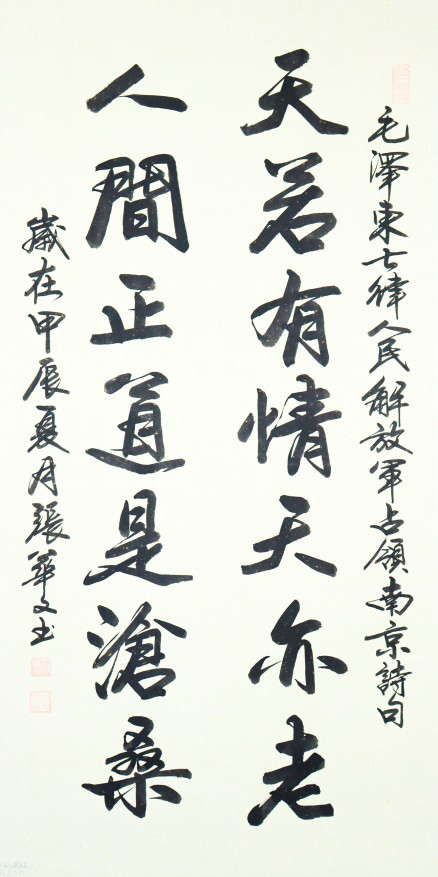 毛澤東七律人民解放軍占領南京詩句
天若有情天亦老
人間正道是滄桑
歲在甲辰夏月張華文書